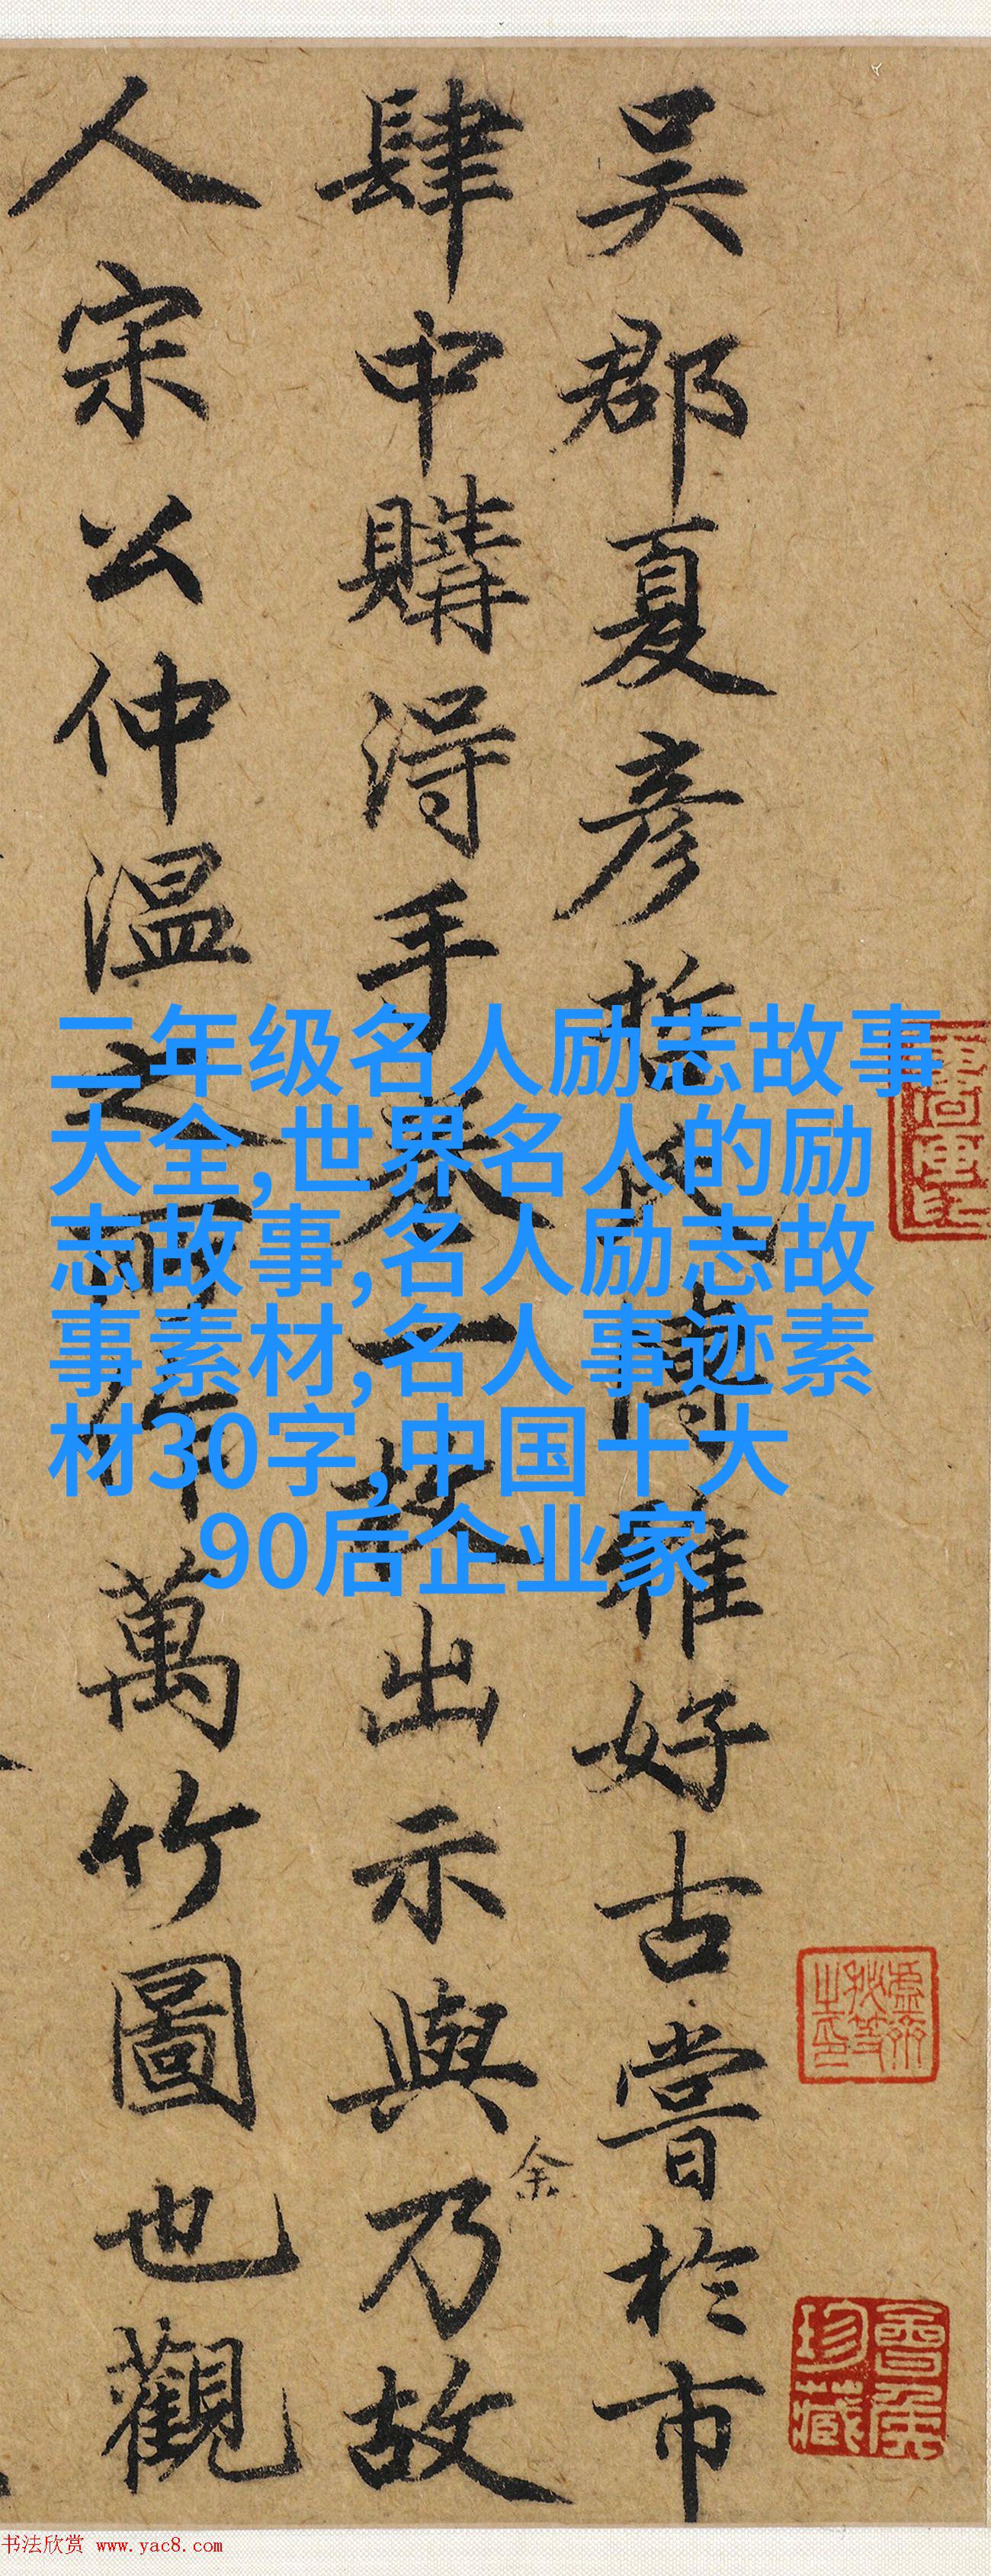 吴郡夏彦哲氏博雅好古嘗於市
肆中購得手卷一出示與乃故
余
人宋公仲温之所作萬竹圖也觀
二年级名人励志故事
大全,世界名人的励
志故事,名人励志故
事素材,名人事迹素
材30字,中国十大
90后企业家
珍藏
书法欣赏 www.yac8.com